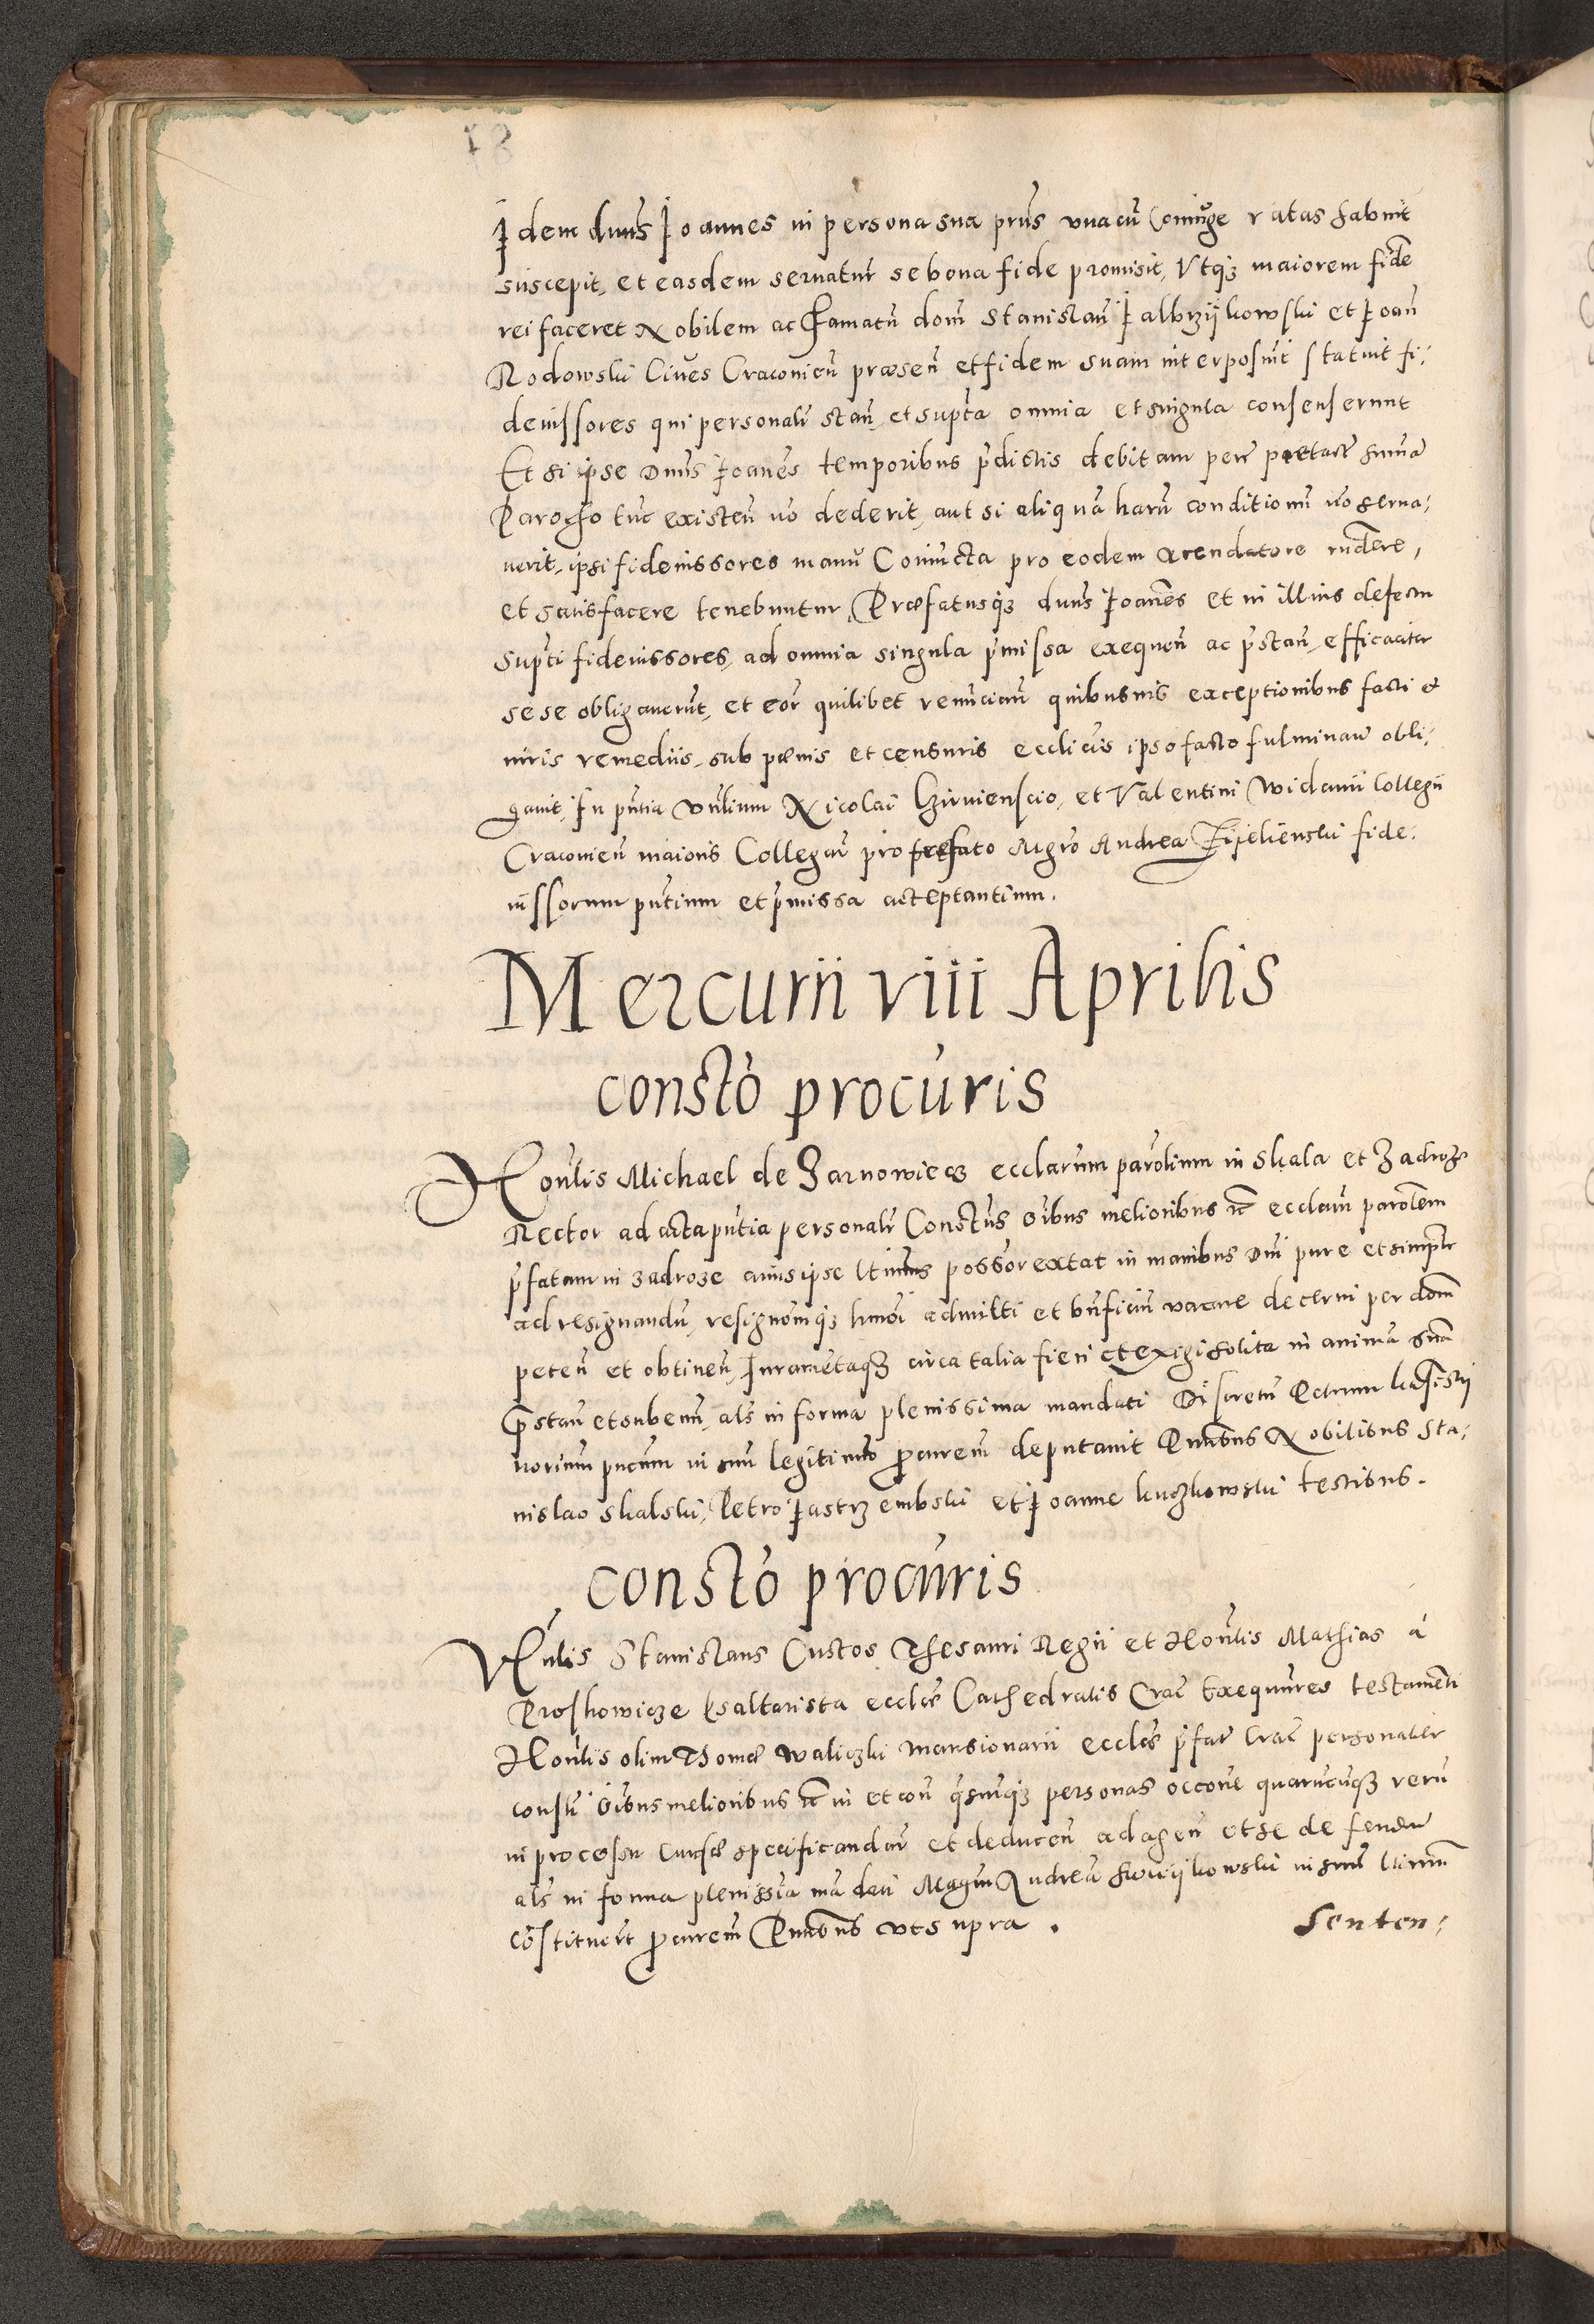 Idem dnns Ioannes in persona sua prius una cū Coniuge ratas habuit
suscepit, et easdem seruatur̄ se bona fide promisit, Vtqз maiorem fidē
rei faceret Nobilem ac Famatū dom̄ Stanislaū Ialbrzijkowski et Ioan̄
Rodowski Ciues Cracouien̄ præsen̄ et fidem suam interposuit statuit fi:
deiussores qui personalr̄ stan̄, et supta omnia et singula consenserunt
Et si ipse Dnns Ioanēs temporibus p̄dictis debitam per pretactē sum̄ā
Parocho tūc existen̄ nō dederit, aut si aliquā harū conditionū nō serua:
uerit, ipsi fideiussores manū Coniuncta pro eodem Arendatore rn̄dere,
et satisfacere tenebuntur, Præfatusqз dnns Ioanēs et in illius defectu
supti fideiussores, ad omnia singula p̄missa exequen̄ ac p̄stan̄, efficaciter
sese obligauerūt, et eor̄ quilibet renūcian̄ quibusuis exceptionibus facti et
iuris remediis, sub pœnis et censuris ecclicis ipso facto fulminan̄ obli:
gauit, In pn̄tia Vn̄lium Nicolai et Valentini Widawii Collegii
Cracouien̄ maioris Collegar̄ pro prefato Mgrō Andrea fide:
iussorum pn̄tium et p̄missa acceptantium.
Mercurii viii Aprilis
constō procuris
Honl̄is Michael de Zarnowiecz ecclarum parōlium in Skala et Zadroz̄
Rector ad acta pn̄tia personalr̄ Constūs oībus melioribus rc ecclaīn parōlem
p̄fatam in Zadroze cuius ipse ltimus possor extat in manibus Dnī pure et simplr
ad resignandū, resignōmqз hmōi admitti et bn̄ficiū vacare decerni per dom̄
peten̄ et obtinen̄, Iuramētaqз circa talia fieri et exigi solita in animā suā
p̄stan̄ et subeun̄, als in forma plenissima mandati Discretū Petrum
in suū legitimū p̄curem̄ deputauit Pntibus Nobilibus Sta:
nislao Skalski, Petro Iastrzembski et Ioanne kuczkowski testibus.
constō procuris
Vn̄lis Stanislaus Custos Thesauri Regii et Honl̄is Mathias à
Proskowicze Psaltarista eccleē Cathedralis Crac̄ Exequnres testamēti
Honl̄is olim Thomæ Waliczki Mansionarii eccleē p̄fat̄ Crac̄ personaliter
consti oībus melioribus rc in et con̄ q̄suiqз personas occone quarūcūqз rerū
in processu causæ specificandar̄ et deducen̄ ad agen̄ et se defenden̄
als in forma plenissīa mādati Magrm Andreā in suū ltimū
cōstituert p̄curem̄ Pntibus ut supra.
Senten: